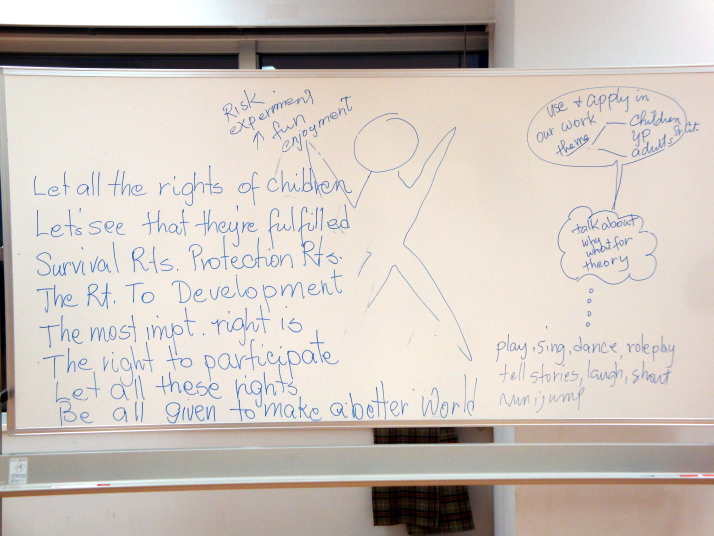 Risk
experiment
↑ fun
enjoyment
Let all the rights of children
Let's see that they're fulfilled
Survival Rts. Protection Rts.
The Rt. To Development
The most impt. right is
The right to participate
Let all these rights
Be all given to make a better World
use + apply in
our work
theme
children
yp
adults
talk about
why
what for
theory
play, sing, dance, roleplay
tell stories, laugh, shout
run, jump